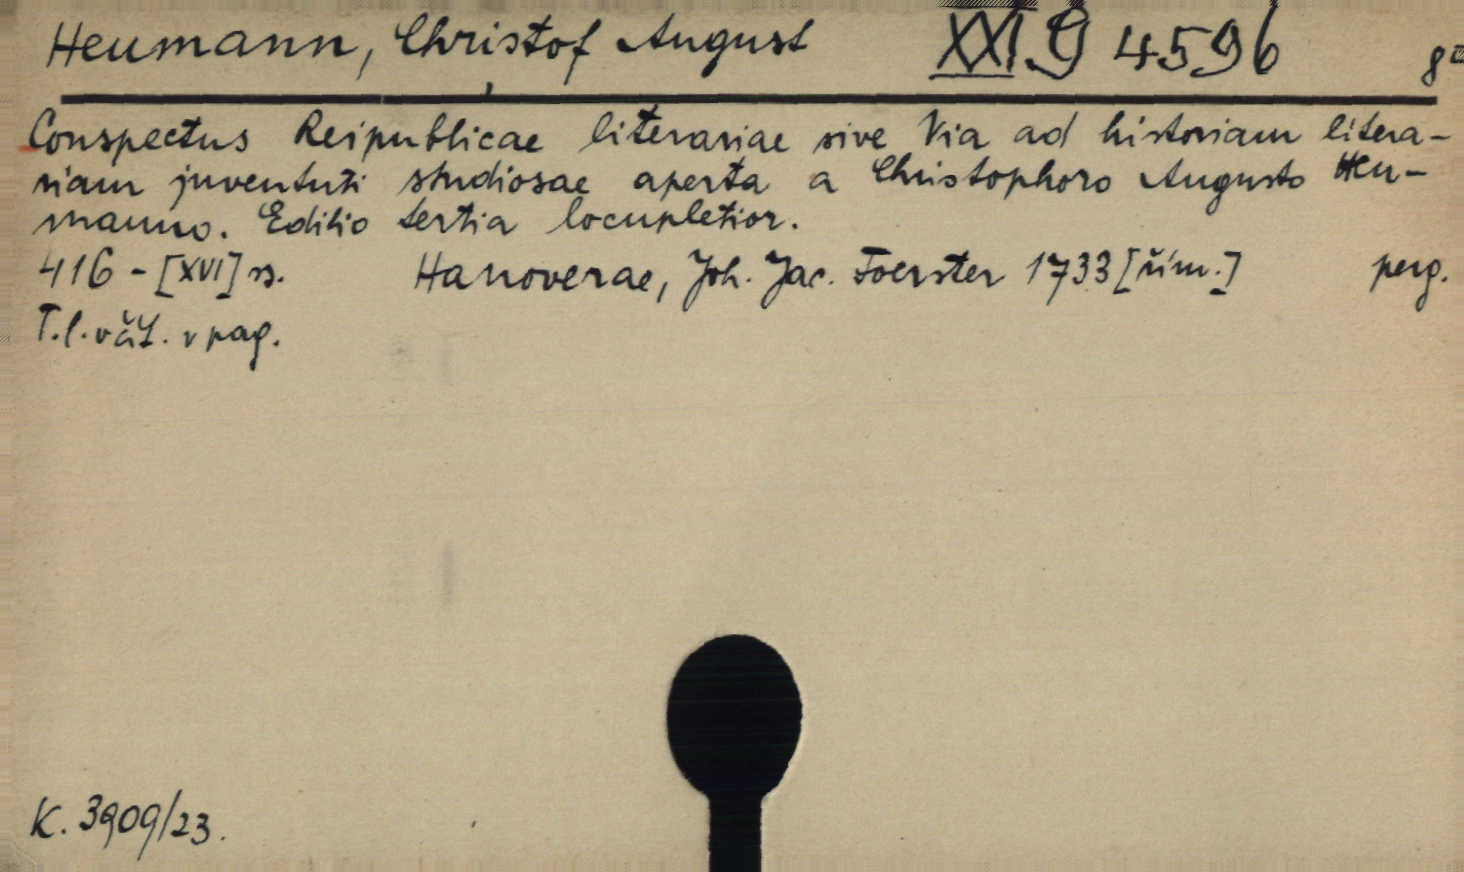 Heumann, Christof August XXI.g 4596 8°
Conspectus Reipublicae literariae sive Via ad historiam litera-
riam juventuti studiosae aperta a Christophoro Augusto Heu-
manno. Editio tertia locupletior.
416 - [XVI] ss. Hanoverae, Joh. Jac. Foerster 1733 [řím.] perg.
T.l. včít. v pag.
K. 3909/23.